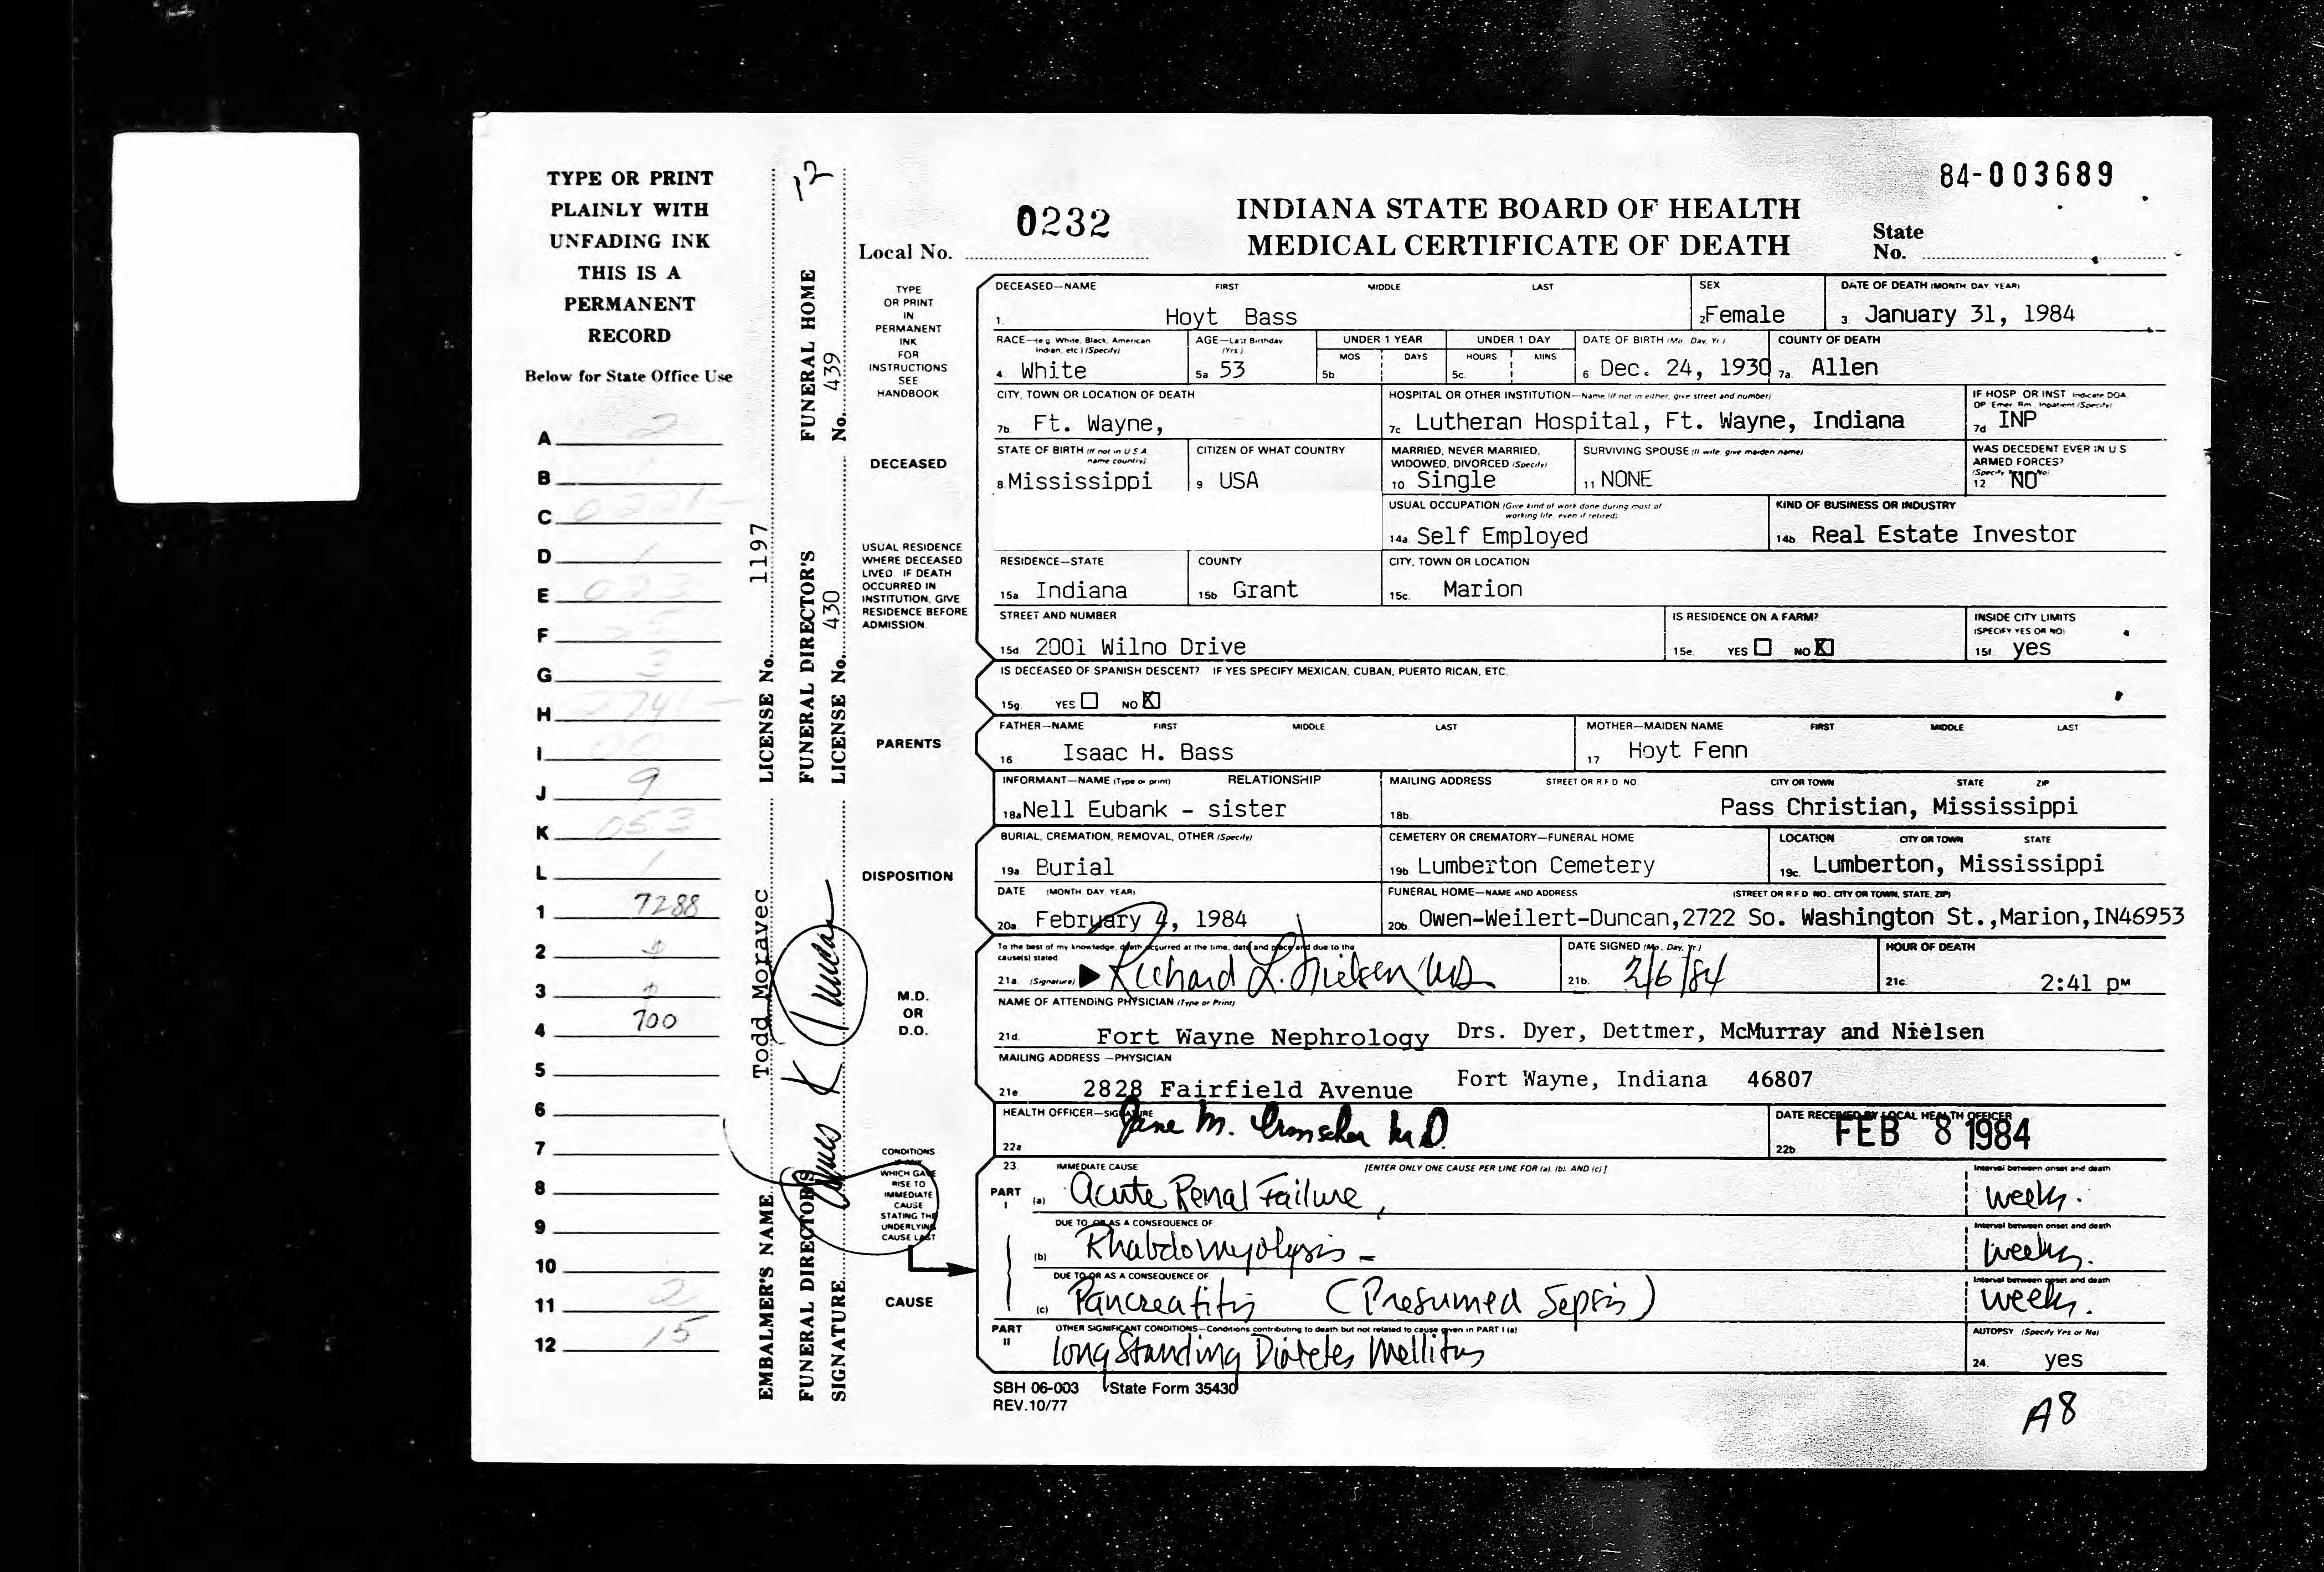 84-003689
TYPE OR PRINT
PLAINLY WITH
UNFADING INK
THIS IS A
PERMANENT
RECORD
Below for State Office Use
A 2
B
C
D 1
E 023
F 25
G 3
H
I
J 9
K 053
L 1
1 7288
2
3
4 700
5
6
7
8
9
10
11 2
12 15
EMBALMER'S NAME Todd Moravec LICENSE No. 1197
FUNERAL DIRECTOR'S FUNERAL DIRECTOR'S FUNERAL HOME 12
SIGNATURE James K Duncan LICENSE No. 430 No. 439
0232
Local No.
INDIANA STATE BOARD OF HEALTH
MEDICAL CERTIFICATE OF DEATH
State
No.
TYPE
OR PRINT
IN
PERMANENT
INK
FOR
INSTRUCTIONS
SEE
HANDBOOK
DECEASED
USUAL RESIDENCE
WHERE DECEASED
LIVED. IF DEATH
OCCURRED IN
INSTITUTION, GIVE
RESIDENCE BEFORE
ADMISSION
PARENTS
DISPOSITION
M.D.
OR
D.O.
CONDITIONS
IF ANY
WHICH GAVE
RISE TO
IMMEDIATE
CAUSE
STATING THE
UNDERLYING
CAUSE LAST
CAUSE
DECEASED—NAME FIRST MIDDLE LAST SEX DATE OF DEATH (MONTH, DAY, YEAR)
1. Hoyt Bass 2 Female 3. January 31, 1984
RACE—(e.g. White, Black, American Indian, etc.) (Specify) AGE—Last Birthday (Yrs.) UNDER 1 YEAR UNDER 1 DAY DATE OF BIRTH (Mo., Day, Yr.) COUNTY OF DEATH
MOS DAYS HOURS MINS
4. White 5a. 53 5b. 5c. 6 Dec. 24, 1930 7a. Allen
CITY, TOWN OR LOCATION OF DEATH HOSPITAL OR OTHER INSTITUTION—Name (If not in either, give street and number) IF HOSP. OR INST. Indicate DOA, OP Emer. Rm., Inpatient (Specify)
7b. Ft. Wayne, 7c. Lutheran Hospital, Ft. Wayne, Indiana 7d INP
STATE OF BIRTH (If not in U.S.A. name country) CITIZEN OF WHAT COUNTRY MARRIED, NEVER MARRIED, WIDOWED, DIVORCED (Specify) SURVIVING SPOUSE (If wife, give maiden name) WAS DECEDENT EVER IN U.S. ARMED FORCES? (Specify Yes or No)
8. Mississippi 9. USA 10 Single 11 NONE 12 NO
USUAL OCCUPATION (Give kind of work done during most of working life, even if retired) KIND OF BUSINESS OR INDUSTRY
14a. Self Employed 14b. Real Estate Investor
RESIDENCE—STATE COUNTY CITY, TOWN OR LOCATION
15a. Indiana 15b. Grant 15c. Marion
STREET AND NUMBER IS RESIDENCE ON A FARM? INSIDE CITY LIMITS (SPECIFY YES OR NO)
15d. 2001 Wilno Drive 15e. YES NO X 15f. yes
IS DECEASED OF SPANISH DESCENT? IF YES SPECIFY MEXICAN, CUBAN, PUERTO RICAN, ETC.
15g. YES NO X
FATHER—NAME FIRST MIDDLE LAST MOTHER—MAIDEN NAME FIRST MIDDLE LAST
16 Isaac H. Bass 17 Hoyt Fenn
INFORMANT—NAME (Type or print) RELATIONSHIP MAILING ADDRESS STREET OR R.F.D. NO. CITY OR TOWN STATE ZIP
18a. Nell Eubank - sister 18b. Pass Christian, Mississippi
BURIAL, CREMATION, REMOVAL, OTHER (Specify) CEMETERY OR CREMATORY—FUNERAL HOME LOCATION CITY OR TOWN STATE
19a. Burial 19b. Lumberton Cemetery 19c. Lumberton, Mississippi
DATE (MONTH, DAY, YEAR) FUNERAL HOME—NAME AND ADDRESS (STREET OR R.F.D. NO., CITY OR TOWN, STATE, ZIP)
20a. February 4, 1984 20b. Owen-Weilert-Duncan,2722 So. Washington St.,Marion,IN46953
To the best of my knowledge, death occurred at the time, date and place and due to the cause(s) stated DATE SIGNED (Mo., Day, Yr.) HOUR OF DEATH
21a. (Signature) Richard L. Nielsen MD 21b. 2/6/84 21c. 2:41 PM
NAME OF ATTENDING PHYSICIAN (Type or Print)
21d. Fort Wayne Nephrology Drs. Dyer, Dettmer, McMurray and Nielsen
MAILING ADDRESS—PHYSICIAN
21e. 2828 Fairfield Avenue Fort Wayne, Indiana 46807
HEALTH OFFICER—SIGNATURE DATE RECEIVED BY LOCAL HEALTH OFFICER
22a Jane M. Irmscher M.D. 22b FEB 8 1984
23. IMMEDIATE CAUSE [ENTER ONLY ONE CAUSE PER LINE FOR (a), (b), AND (c)] Interval between onset and death
PART I (a) Acute Renal Failure, weeks.
DUE TO, OR AS A CONSEQUENCE OF Interval between onset and death
(b) Rhabdomyolysis - weeks.
DUE TO, OR AS A CONSEQUENCE OF Interval between onset and death
(c) Pancreatitis (Presumed Sepsis) weeks.
PART II OTHER SIGNIFICANT CONDITIONS—Conditions contributing to death but not related to cause given in PART I (a) AUTOPSY (Specify Yes or No)
long Standing Diabetes Mellitus 24. yes
SBH 06-003 State Form 35430
REV.10/77
A8